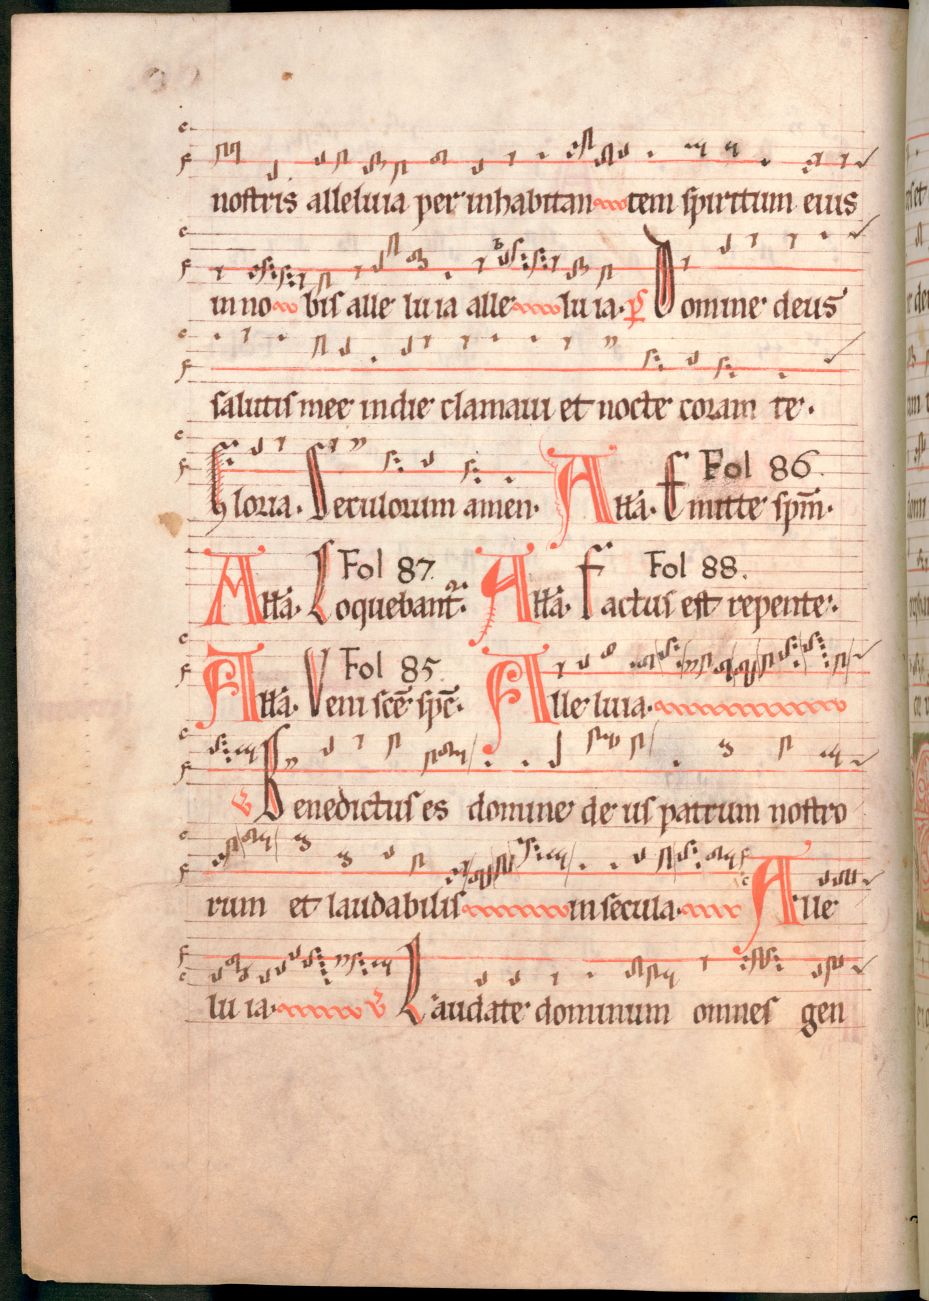 nostris alleluia per inhabitan tem spiritum eius
in no bis alle lu ia alle lu ia. Domine deus
salutis mee in die clamaui et nocte coram te.
Gloria. Seculorum amen. Fol 86. All̃a. Emitte sp̄m.
All̃a. Fol 87. Loquebant᷑. All̃a. Fol 88. Factus est repente.
All̃a. Fol 85. Veni sc̄e sp̄c. Alle lu ia.
Benedictus es domine de us patrum nostro
rum et laudabilis in secula. Alle
lu ia. Laudate dominum omnes gen